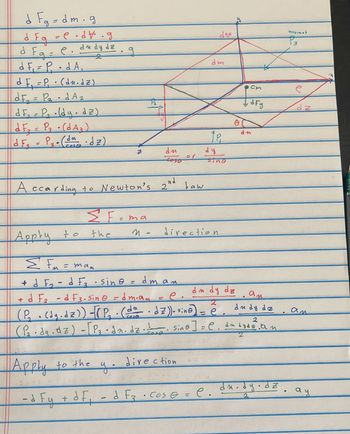 d Fg = dm . g
d Fg = ρ . d∀ . g
d Fg = ρ . dx dy dz / 2 . g
dF₁ = P₁ . dA₁
dF₁ = P₁ . (dx . dz)
dF₂ = P₂ . dA₂
dF₂ = P₂ . (dy . dz)
dF₃ = P₃ . (dA₃)
dF₃ = P₃ . (dx / cosθ . dz)
d∀
dm
P₃
cm
dFg
ρ
dz
P₂
θ
dx
P₁
dx / cosθ or dy / sinθ
According to Newton's 2nd Law
Σ F = ma
Apply to the x - direction
Σ Fx = max
+ dF₂ - dF₃ . sinθ = dm ax
+ dF₂ - dF₃ . sinθ = dm ax = ρ . dx dy dz / 2 . ax
(P₂ . (dy . dz)) - [(P₃ . (dx / cosθ . dz)) . sinθ] = ρ . dx dy dz / 2 . ax
(P₂ . dy . dz) - [P₃ . dx . dz . 1 / cosθ . sinθ] = ρ . dx dy dz / 2 . ax
Apply to the y . direction
- d Fg + dF₁ - dF₃ . cosθ = ρ . dx . dy . dz / 2 . ay